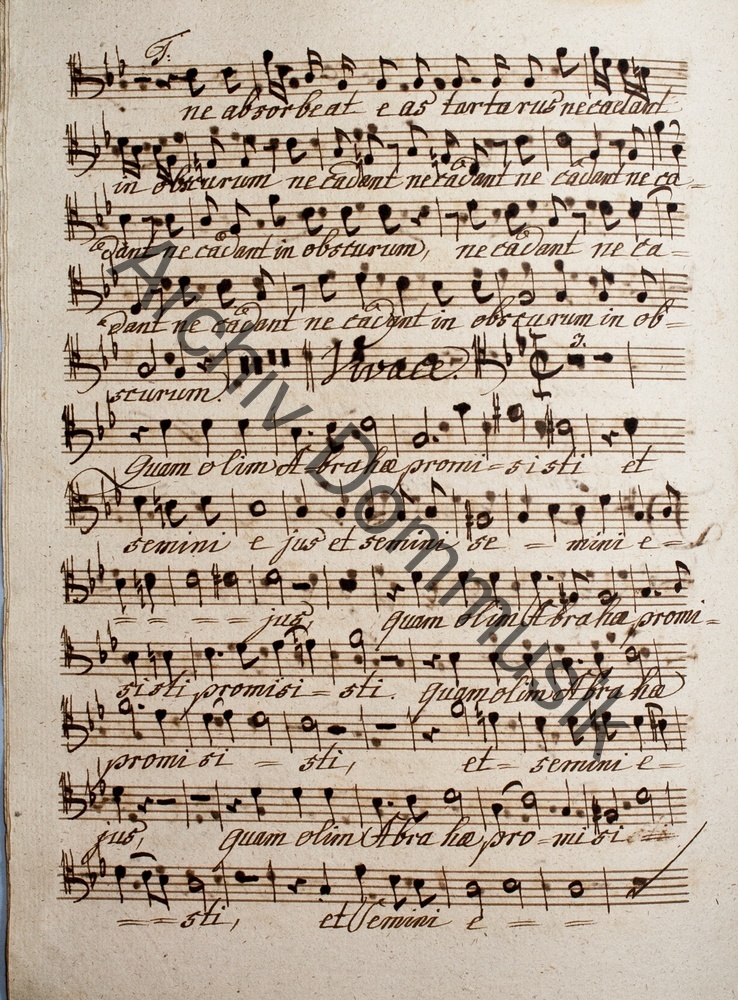 T:
ne absorbeat e as tartarus ne cadant
in obscurum ne cadant ne cadant ne cadant ne ca=
dant ne cadant in obscurum, ne cadant ne ca=
dant ne cadant ne cadant in obscurum in ob=
Vivace. 3.
scurum.
Quam olim Abrahæ promi-sisti et
semini e jus et semini se = mini e =
= = = = jus, quam olim Abrahæ promi=
sisti promisi = sti. quam olim Abrahæ
promi si = sti, et= semini e=
jus, quam olim Abrahæ pro=misi =
= = sti, et Semini e = = =
Archiv Dommusik